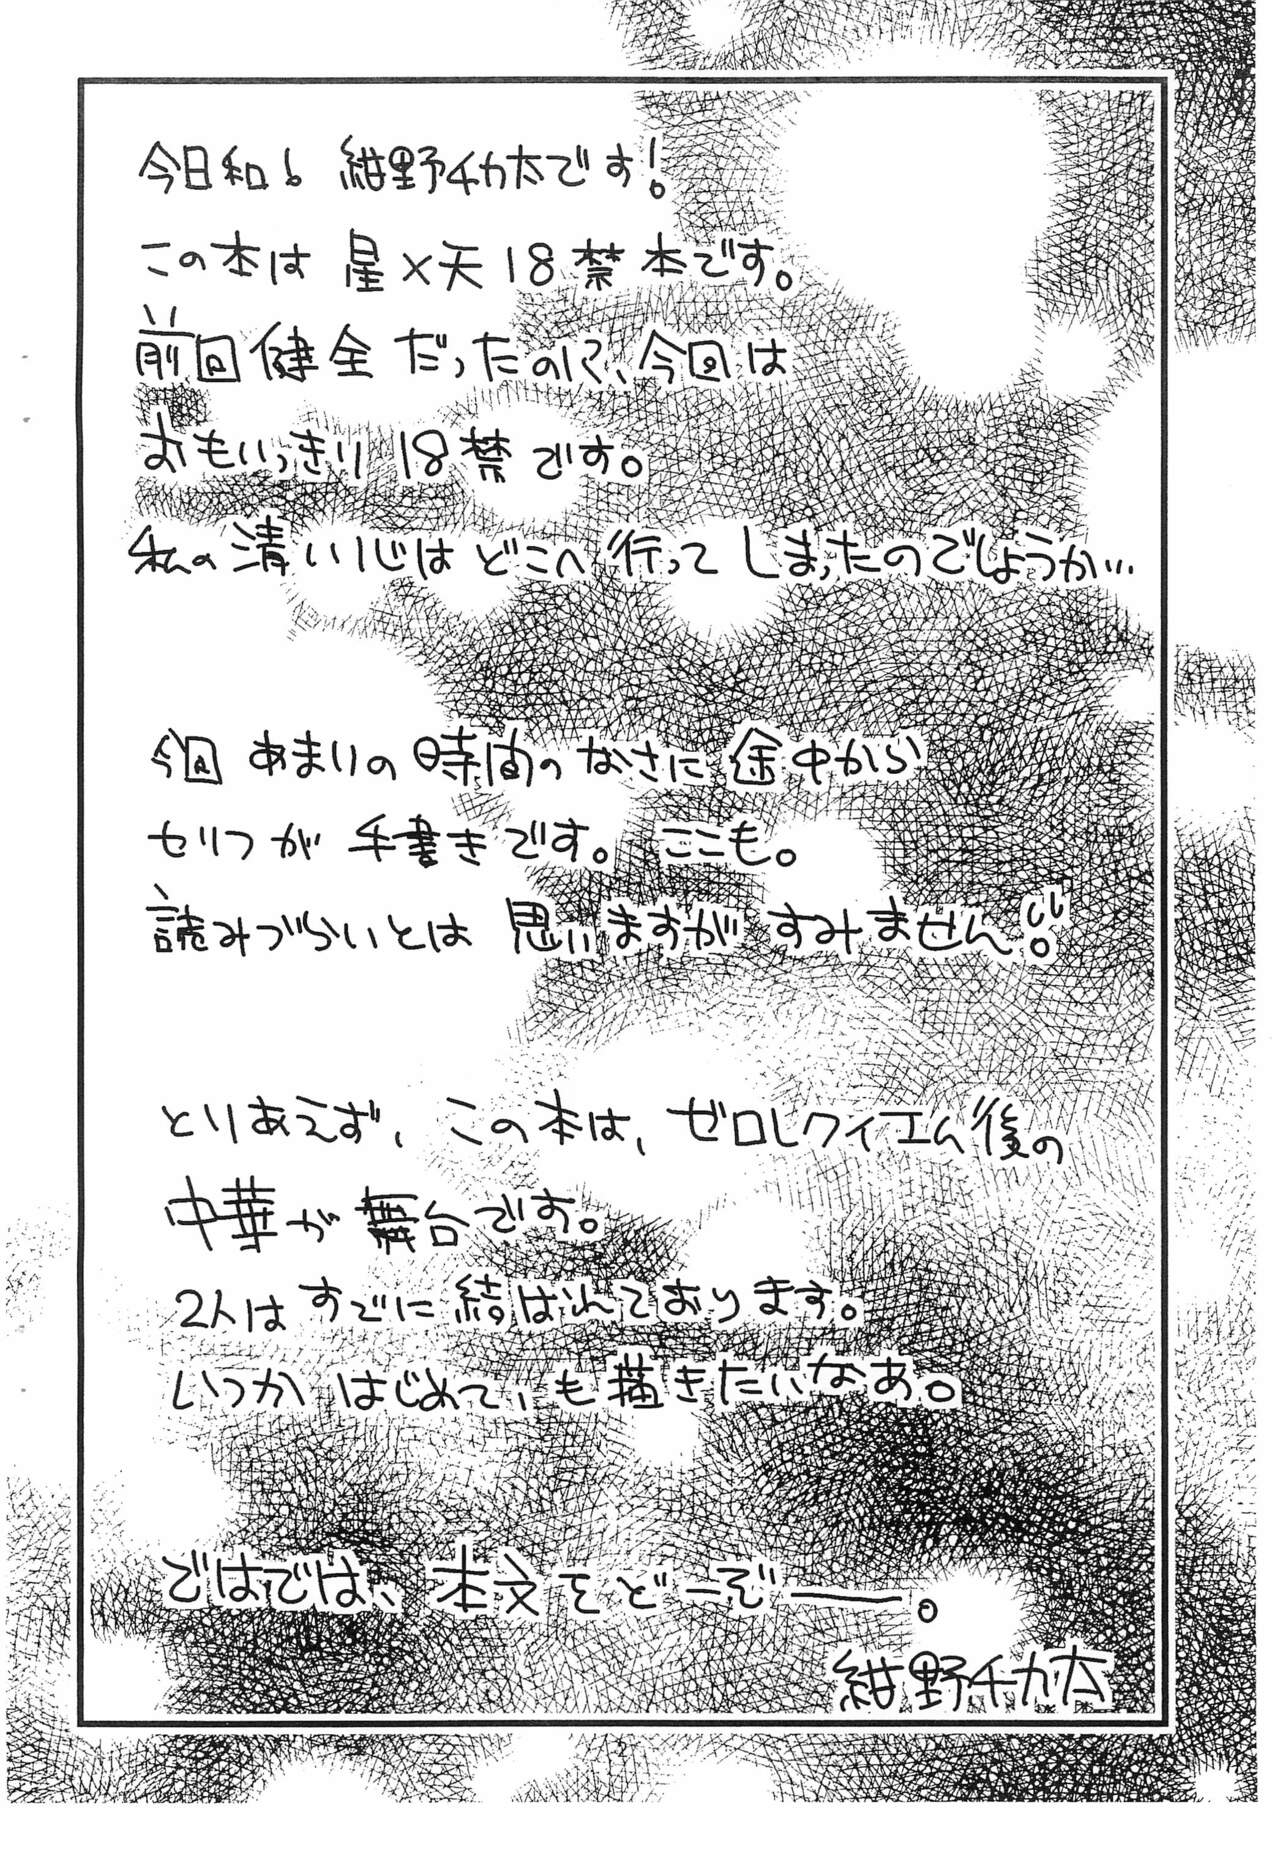 今日和! 紺野千力太です!
この本は 星×天 18禁本です。
前回健全だったのに、今回は
おもいっきり 18禁です。
私の清い心は どこへ行って しまったのでしょうか…
今回 あまりの 時間の なさに 途中から
セリフが 手書きです。 ここも。
読みづらいとは 思いますが すみません!!
とりあえず、この本は、ゼロレクイエム後の
中華が 舞台です。
2人は すでに 結ばれております。
いつか はじめて、も描きたいなあ。
ではでは、本文をどーぞー。
紺野千力太